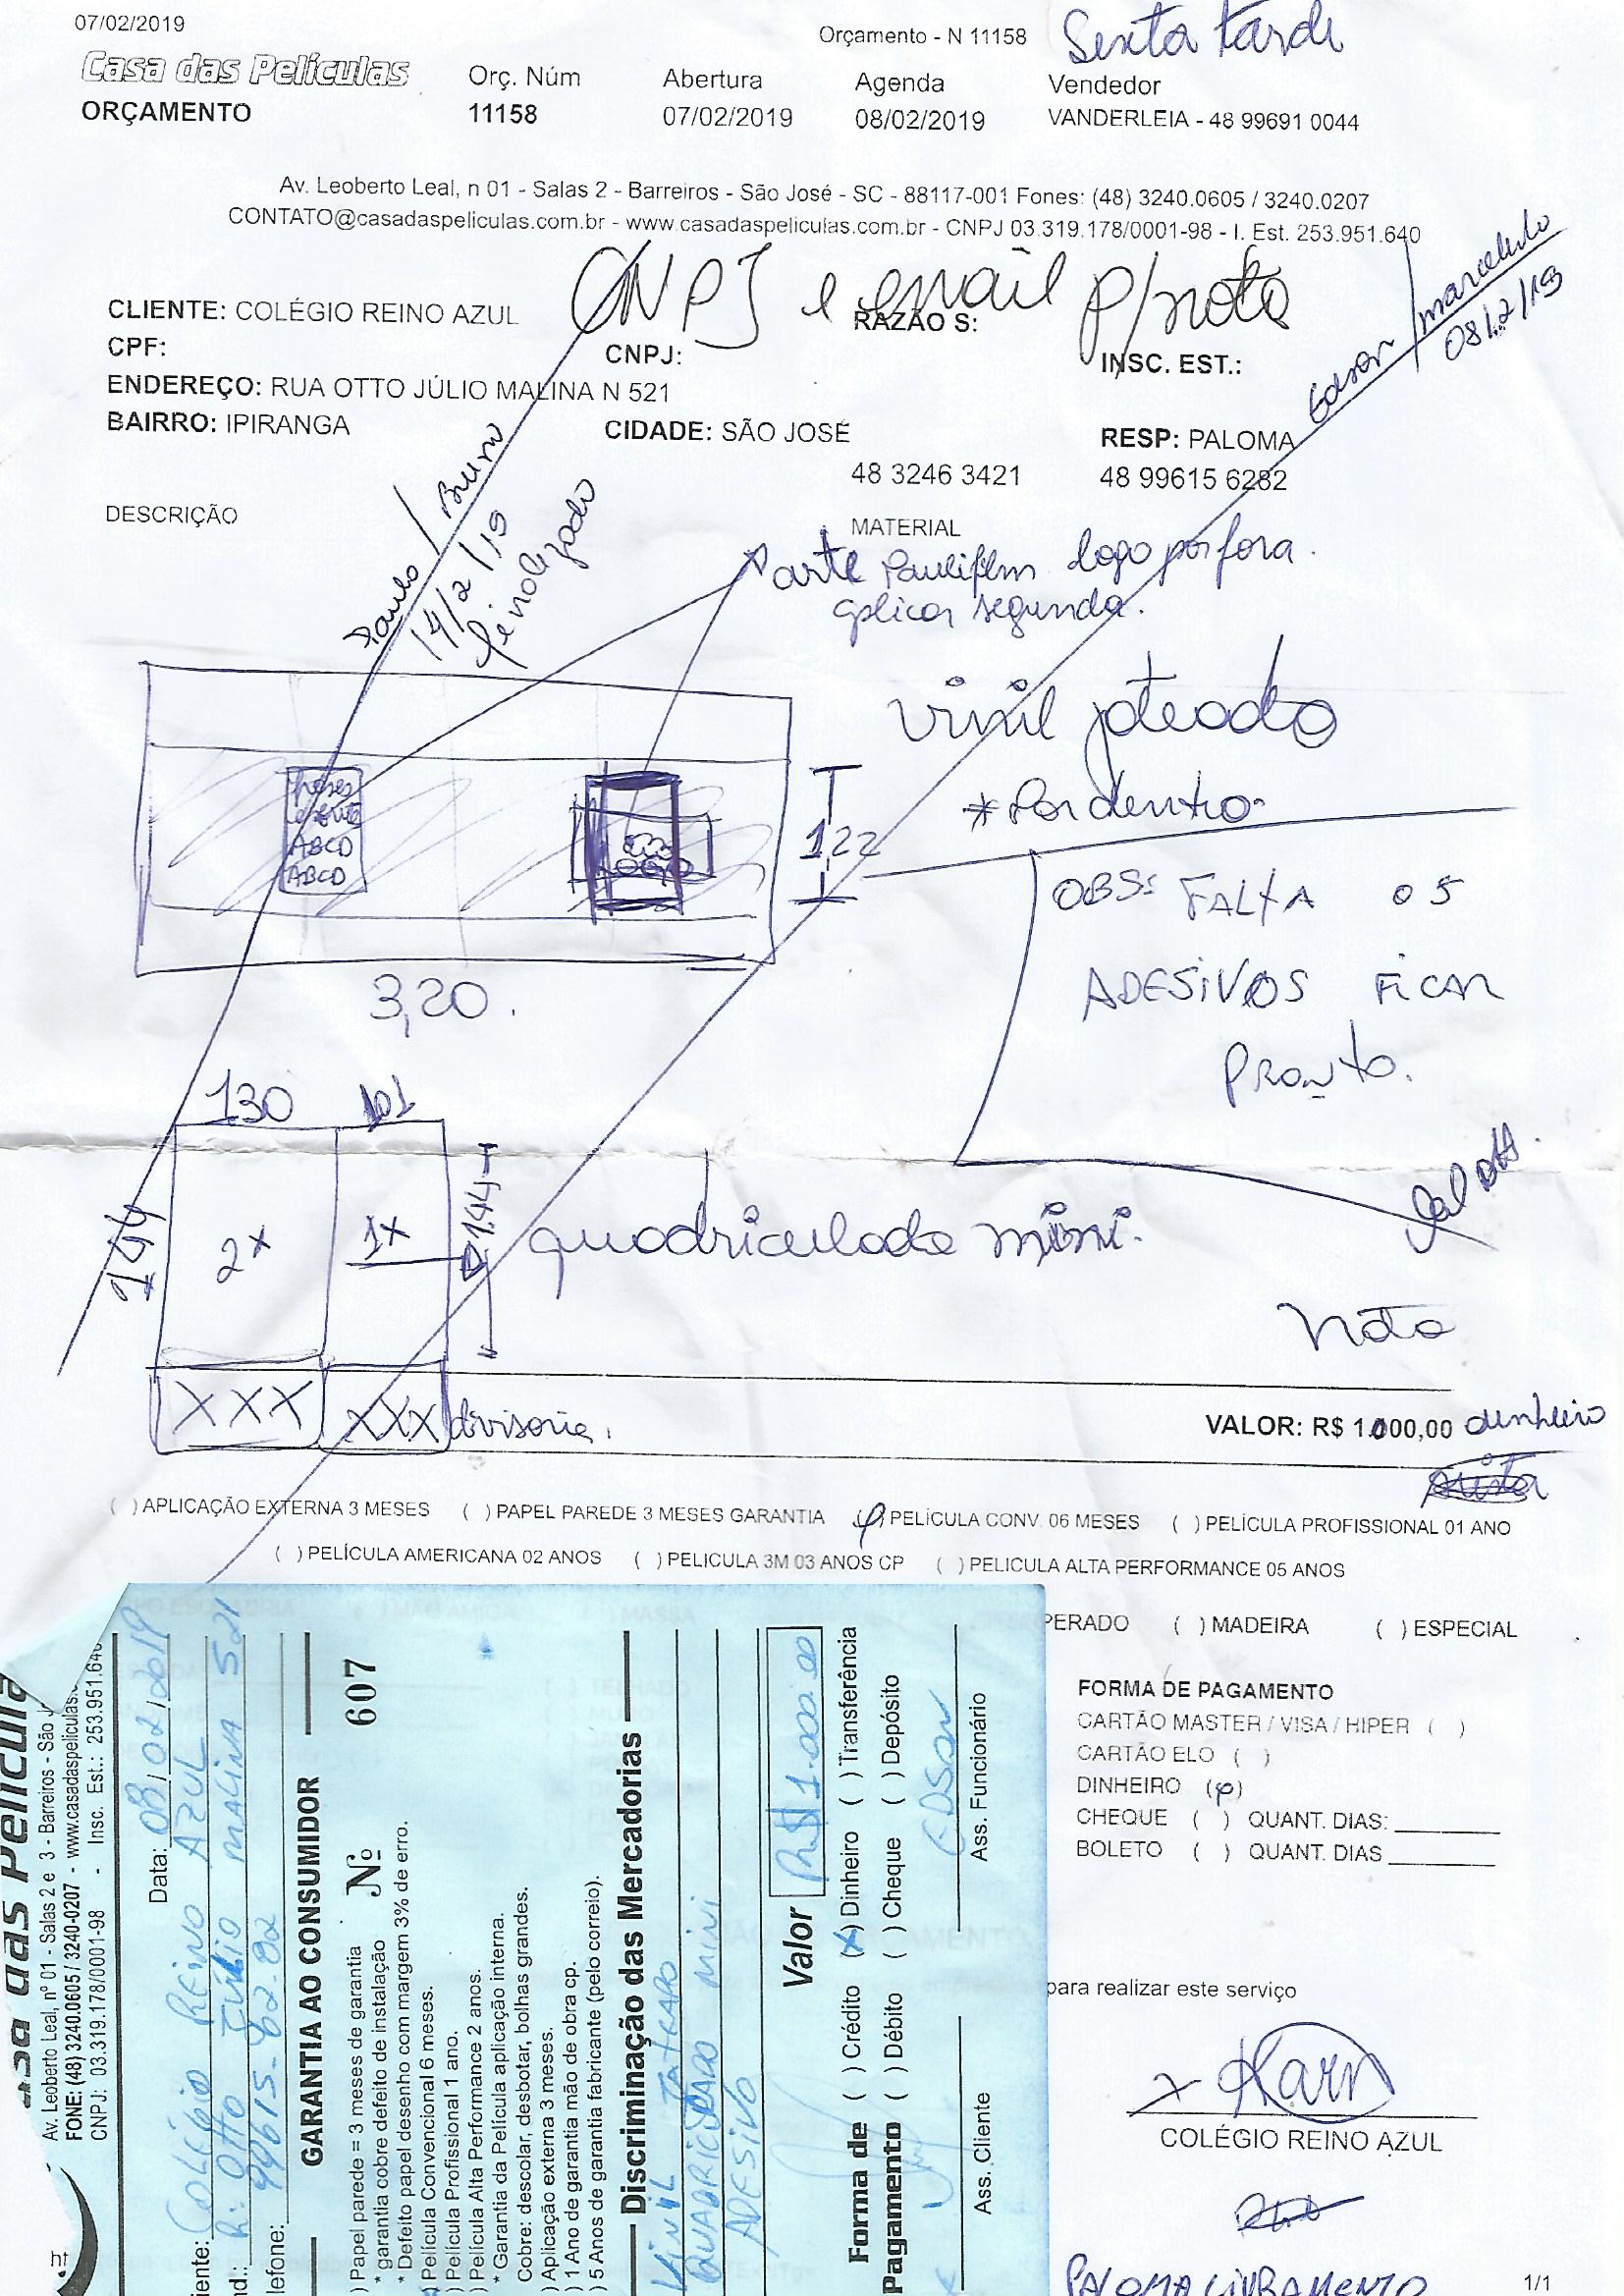 07/02/2019
Orçamento - N 11158
Sexta tarde
Casa das Películas
ORÇAMENTO
Orç. Núm
11158
Abertura
07/02/2019
Agenda
08/02/2019
Vendedor
VANDERLEIA - 48 99691 0044
Av. Leoberto Leal, n 01 - Salas 2 - Barreiros - São José - SC - 88117-001 Fones: (48) 3240.0605 / 3240.0207
CONTATO@casadaspeliculas.com.br - www.casadaspeliculas.com.br - CNPJ 03.319.178/0001-98 - I. Est. 253.951.640
CNPJ e email p/nota
Edson / marcelulo
08/2/19
CLIENTE: COLÉGIO REINO AZUL
RAZÃO S:
CPF:
CNPJ:
INSC. EST.:
ENDEREÇO: RUA OTTO JÚLIO MALINA N 521
BAIRRO: IPIRANGA
CIDADE: SÃO JOSÉ
RESP: PALOMA
48 3246 3421
48 99615 6282
Paulo / Bruno
14/2/19
finalizado
DESCRIÇÃO
MATERIAL
arte Paulifilm logo por fora.
aplicar segunda.
vinil jateado
* Por dentro
ABCD
ABCD
LOGO
122
3,20.
OBS: FALTA OS
ADESIVOS FICAR
PRONTO.
130
101
144
2x
1x
1.44
quadriculado mini.
Nota
XXX
XXX divisoria.
VALOR: R$ 1.000,00 dinheiro
( ) APLICAÇÃO EXTERNA 3 MESES ( ) PAPEL PAREDE 3 MESES GARANTIA ( ) PELÍCULA CONV. 06 MESES ( ) PELÍCULA PROFISSIONAL 01 ANO
( ) PELÍCULA AMERICANA 02 ANOS ( ) PELICULA 3M 03 ANOS CP ( ) PELICULA ALTA PERFORMANCE 05 ANOS
PERADO ( ) MADEIRA ( ) ESPECIAL
FORMA DE PAGAMENTO
CARTÃO MASTER / VISA / HIPER ( )
CARTÃO ELO ( )
DINHEIRO ( )
CHEQUE ( ) QUANT. DIAS:
BOLETO ( ) QUANT. DIAS
para realizar este serviço
x Karn
COLÉGIO REINO AZUL
PALOMA LIVRAMENTO
1/1
asa das Película
Av. Leoberto Leal, nº 01 - Salas 2 e 3 - Barreiros - São J
FONE: (48) 3240.0605 / 3240-0207 - www.casadaspeliculas.
CNPJ: 03.319.178/0001-98 - Insc. Est.: 253.951.640
Data: 08/02/2019
iente: COLÉGIO REINO AZUL
nd.: R: OTTO JÚLIO MALINA 521
lefone: 99615-62-82
GARANTIA AO CONSUMIDOR
) Papel parede = 3 meses de garantia
* garantia cobre defeito de instalação
* Defeito papel desenho com margem 3% de erro.
Nº 607
) Película Convencional 6 meses.
) Película Profissional 1 ano.
) Película Alta Performance 2 anos.
* Garantia da Película aplicação interna.
Cobre: descolar, desbotar, bolhas grandes.
) Aplicação externa 3 meses.
) 1 Ano de garantia mão de obra cp.
) 5 Anos de garantia fabricante (pelo correio).
Discriminação das Mercadorias
VINIL JATEADO
QUADRICULADO MINI
ADESIVO
Valor R$ 1.000.00
Forma de Pagamento
( ) Crédito (X) Dinheiro ( ) Transferência
( ) Débito ( ) Cheque ( ) Depósito
EDSON
Ass. Cliente
Ass. Funcionário